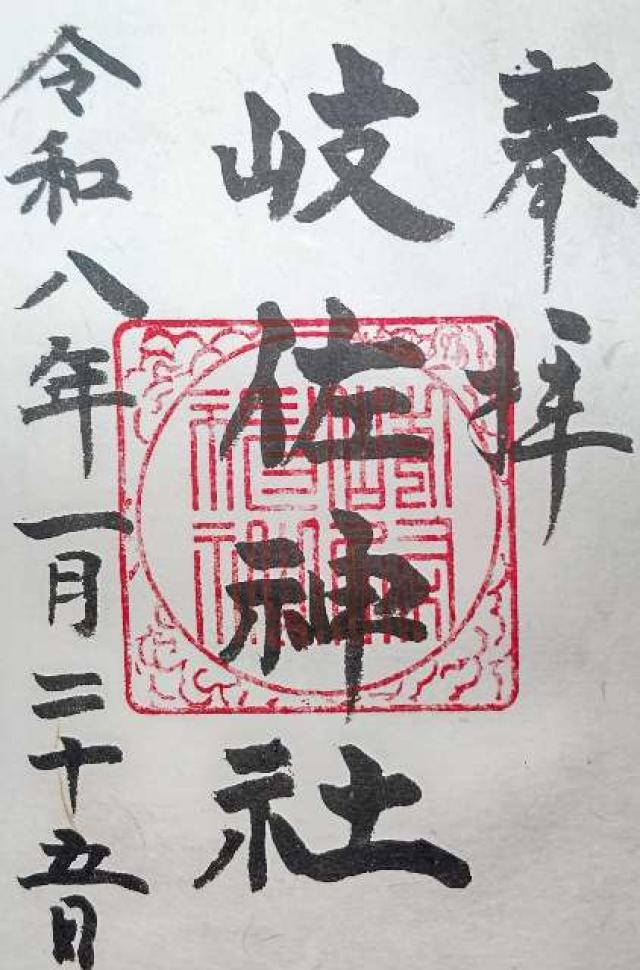 奉拝
岐佐神社
令和八年一月二十五日